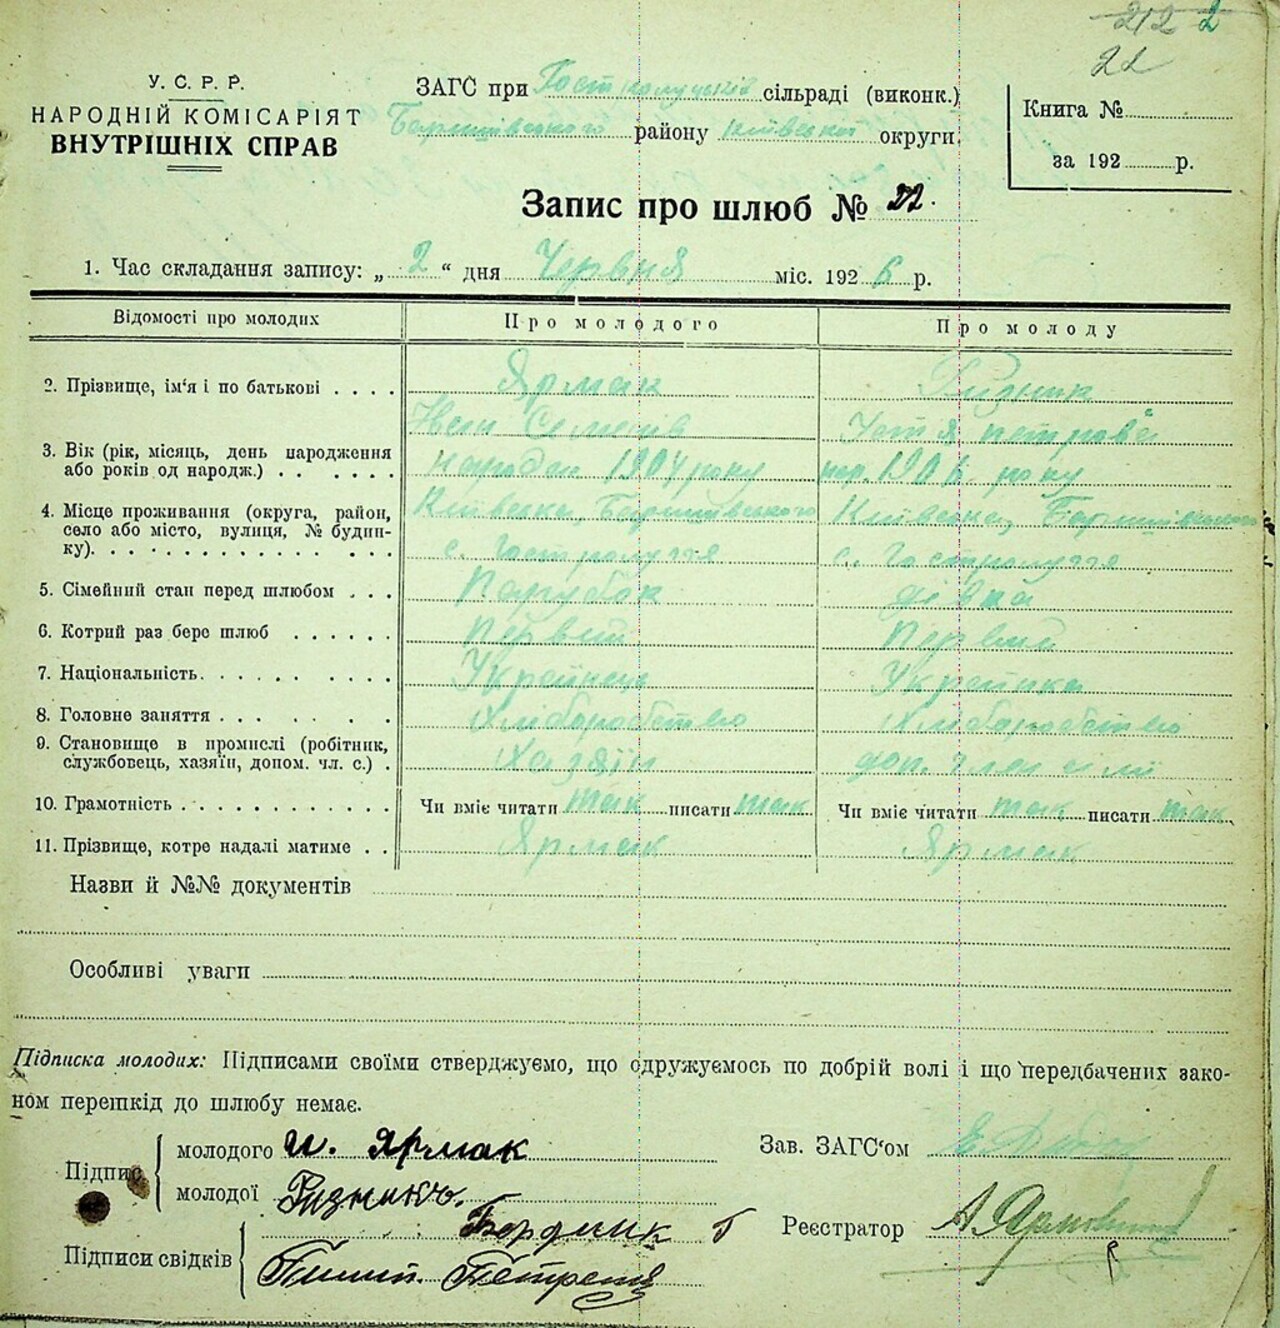 212 2
22
У. С. Р. Р.
НАРОДНІЙ КОМІСАРІЯТ
ВНУТРІШНІХ СПРАВ
ЗАГС при сільраді (виконк.)
Баришівського району Київської округи
Книга №
за 192 р.
Запис про шлюб № 22.
1. Час складання запису: „ 2 “ дня Червня міс. 192 6 р.
Відомості про молодих Про молодого Про молоду
2. Прізвище, ім‘я і по батькові Ярмак Ризник
Иван Семенів Устя петрова
3. Вік (рік, місяць, день народження
або років од народж.) народж 1904 року нар. 1906 року
4. Місце проживання (округа, район, Київська, Баришівського Київська, Баришівського
село або місто, вулиця, № будин-
ку). с. Гостролуччя с. Гостролуччя
5. Сімейний стан перед шлюбом Парубок дівка
6. Котрий раз бере шлюб Первий Первий
7. Національність Українець Українка
8. Головне заняття Хліборобство Хліборобство
9. Становище в промислі (робітник,
службовець, хазяїн, допом. чл. с.) Хазяїн доп. член
10. Грамотність Чи вміє читати так писати так Чи вміє читати так писати так
11. Прізвище, котре надалі матиме Ярмак Ярмак
Назви й №№ документів
Особливі уваги
Підписка молодих: Підписами своїми стверджуємо, що одружуємось по добрій волі і що передбачених зако-
ном перешкід до шлюбу немає.
Підпис
молодого И. Ярмак
молодої Ризникъ.
Зав. ЗАГС‘ом
Підписи свідків
Бордник Г
Петренко
Реєстратор А.